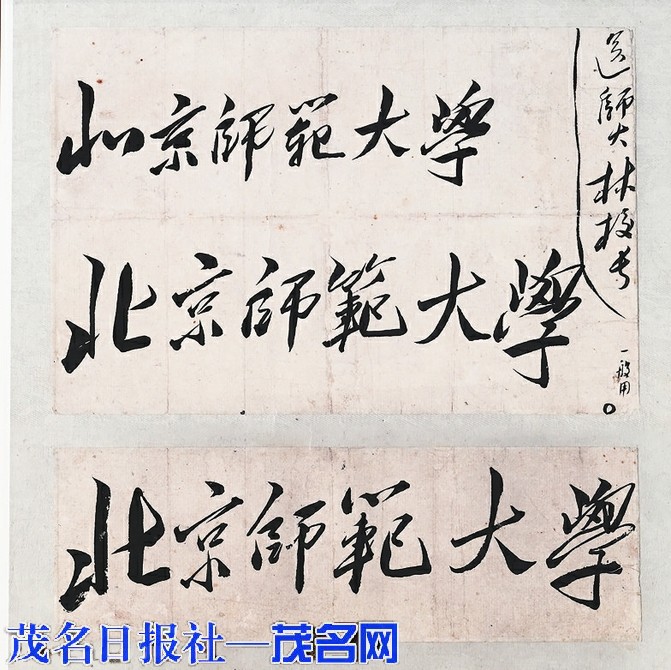 北京師範大學
北京師範大學
送師大林校长
一般用
北京師範大學
茂名日报社—茂名网